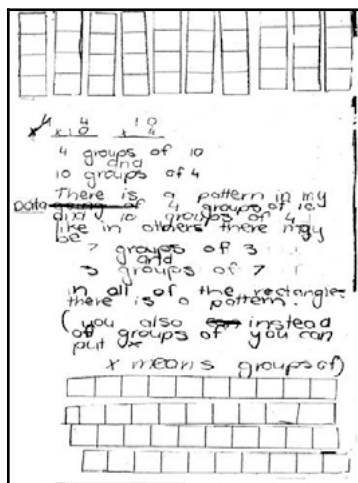 4 10
x 10 x 4
4 groups of 10
and
10 groups of 4
There is a pattern in my
Data of 4 groups of 10
and 10 groups of 4
like in others there may
be
7 groups of 3
and
3 groups of 7
in all of the rectangles
there is a pattern.
(you also instead
of groups of you can
put x
x means groups of)